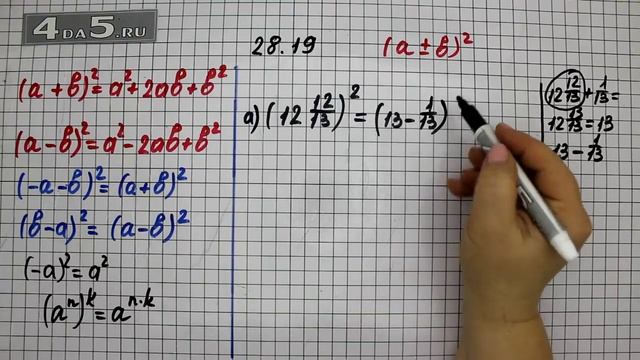 4DA5.RU
28.19
(a ± b)²
(a + b)² = a² + 2ab + b²
(a − b)² = a² − 2ab + b²
(−a − b)² = (a + b)²
(b − a)² = (a − b)²
(−a)² = a²
(aⁿ)ᵏ = aⁿ·ᵏ
а) (12 12/13)² = (13 − 1/13)
12 12/13 + 1/13 =
12 13/13 = 13
13 − 1/13